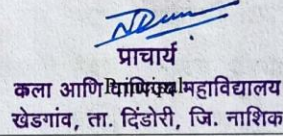 प्राचार्य
कला आणि वाणिज्य महाविद्यालय
Principal
खेडगांव, ता. दिंडोरी, जि. नाशिक